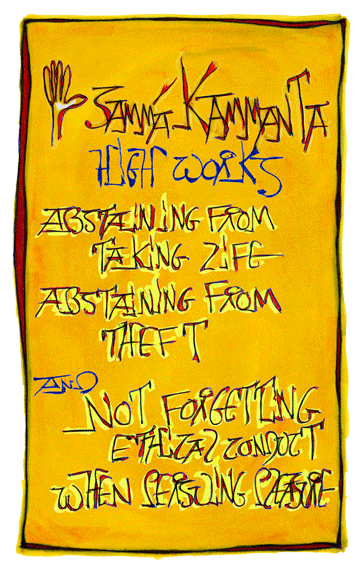 SAMMÁ KAMMANTA
HIGH WORKS
ABSTAINING FROM
TAKING LIFE
ABSTAINING FROM
THEFT
AND
NOT FORGETTING
ETHICAL CONDUCT
WHEN PERSUING PLEASURE